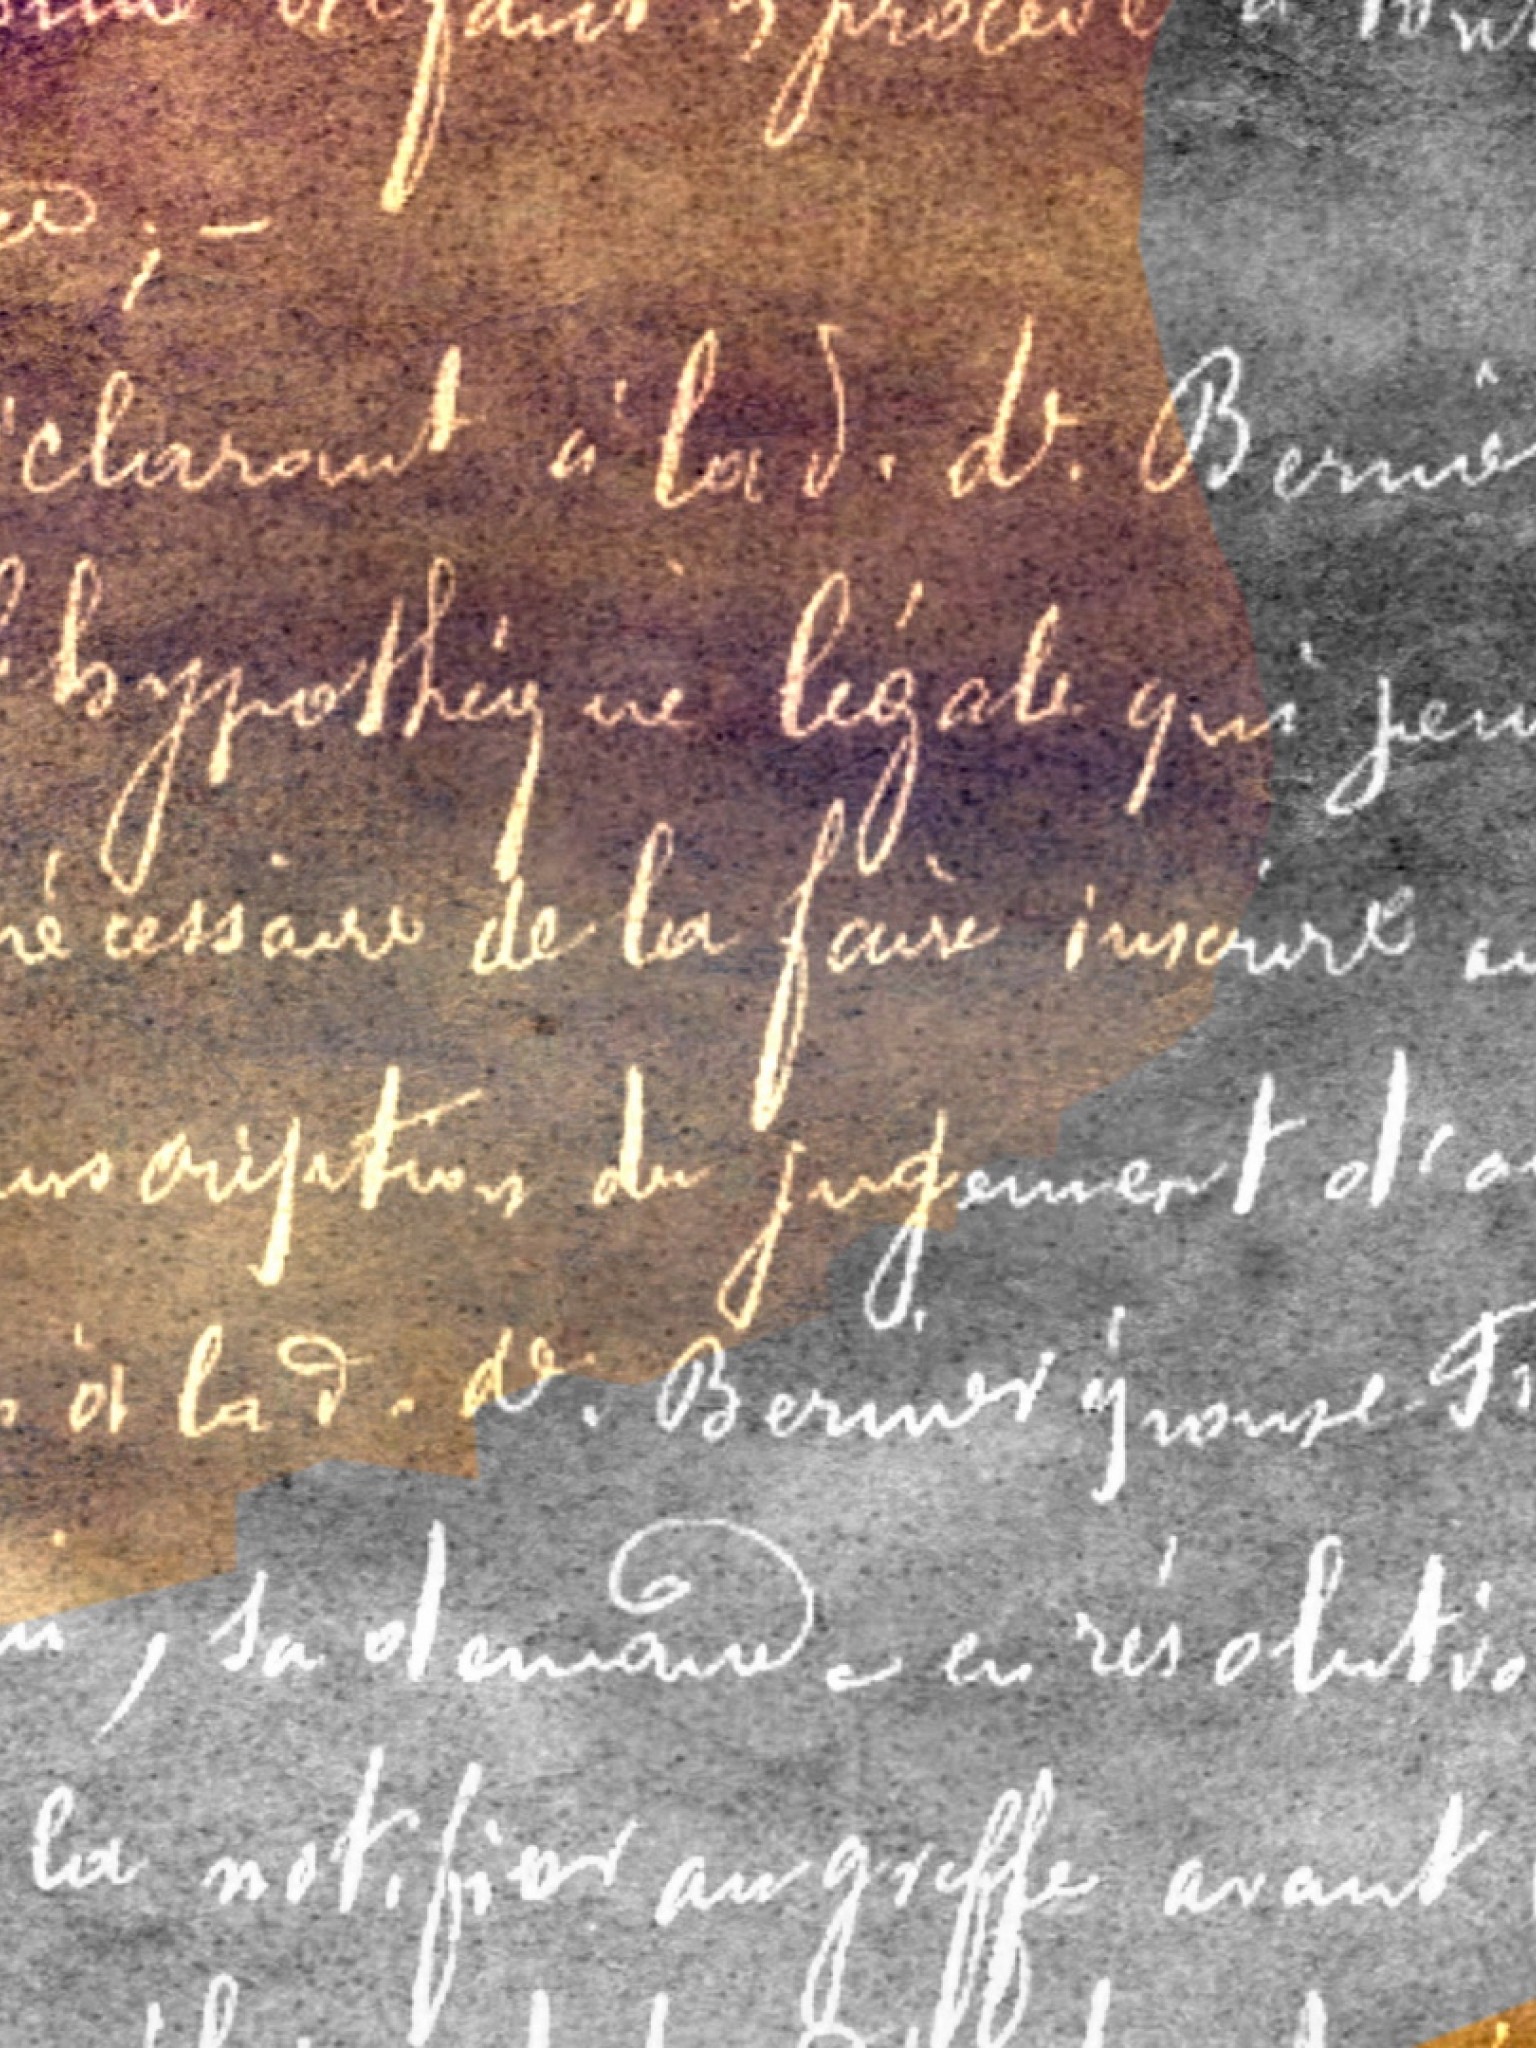 procédé à
; –
'clarant à la d. de. Berniè
l'hypothèque légale qui peu
nécessaire de la faire inscrire au
nscription du jugement d'a
à la d. de. Bernier épouse
, sa demande en résolutio
la notifier au greffe avant